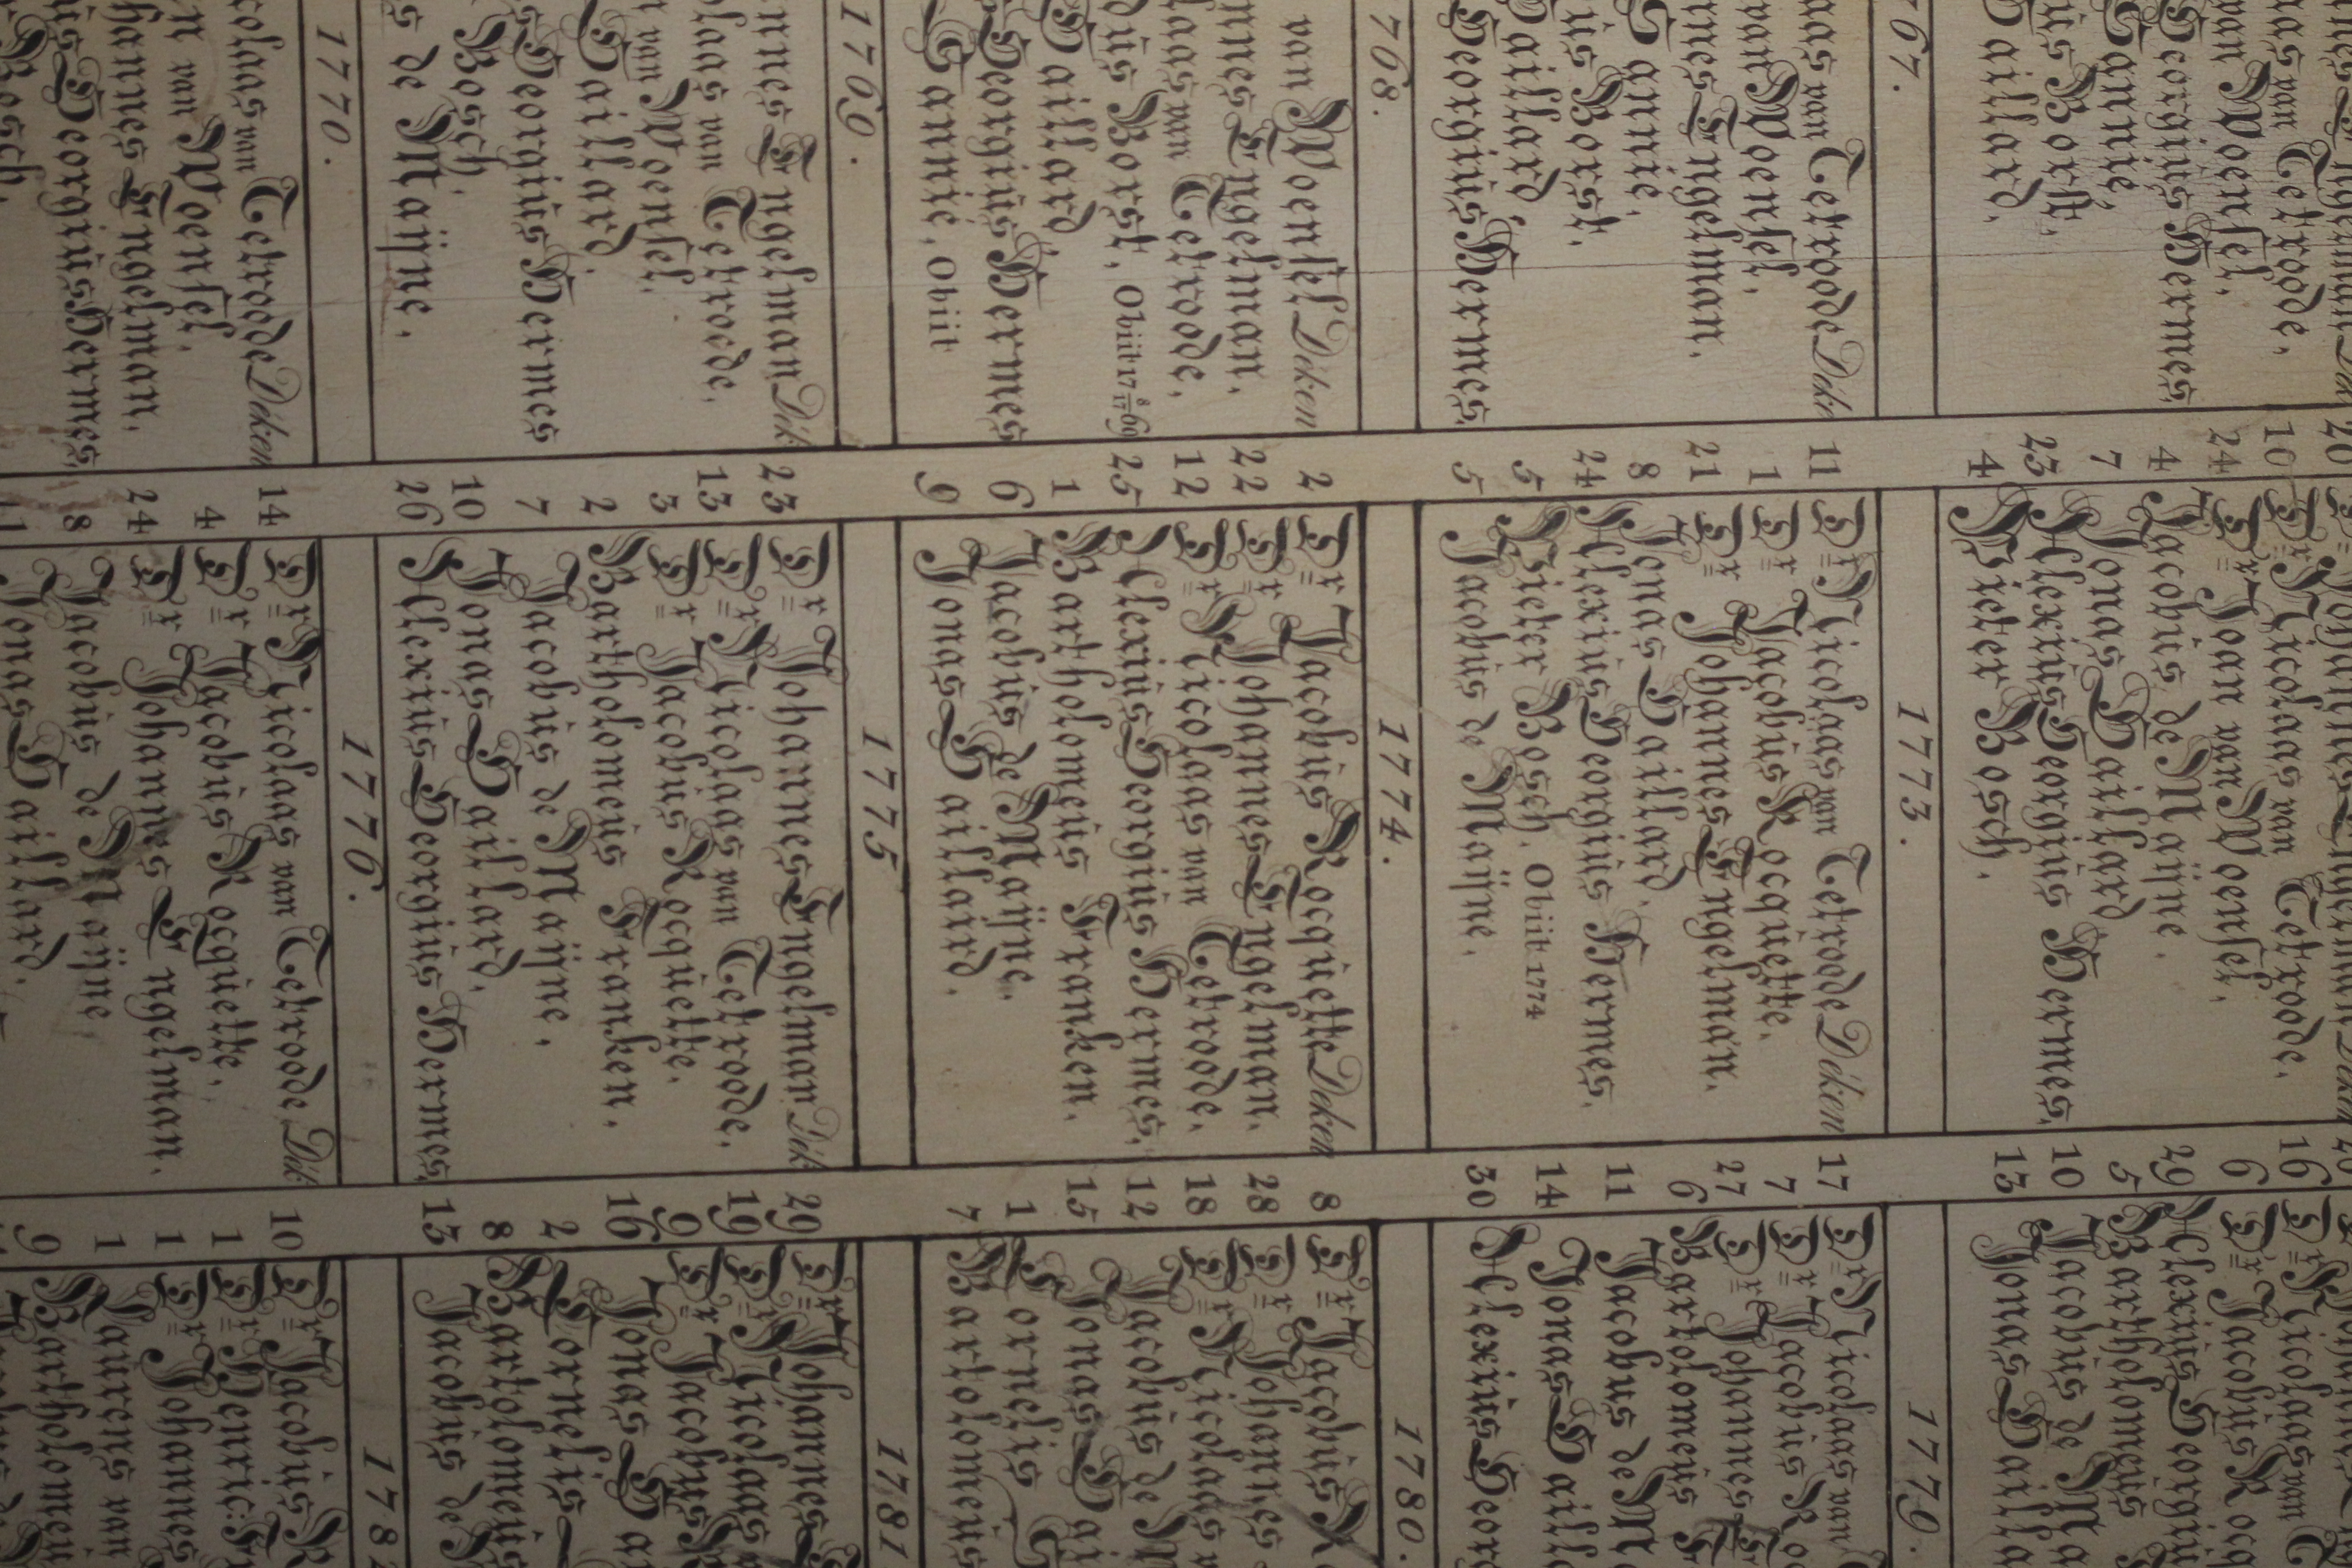 van Tetrode,
van Woensel,
Georgiüs Hermes
Gannié,
Borst,
Daillard,
1767.
van Tetrode Deke
van Woensel,
Engelman,
Gannié,
Borst,
Daillard,
Georgiüs Hermes,
1768.
van Woensel Deken
Engelman,
van Tetrode,
Borst, Obiit 17 8/17 69
Daillard
Georgiüs Hermes
Gannié, Obiit
1769.
Engelman Dek
van Tetrode,
van Woensel,
Daillard,
Georgiüs Hermes
Bosch,
de Maijne,
1770.
van Tetrode Deken
van Woensel,
Engelman,
Georgiüs Hermes,
Bosch,
10 Dr Nicolaas van Tetrode,
24 Dr Joan van Woensel,
4 Jacobüs de Maijne,
7 Jonas Daillard
23 Alexiüs Georgiüs Hermes,
4 Pieter Bosch,
1773.
11 Dr Nicolaas van Tetrode Deken
1 Dr Jacobüs Rocqüette,
21 Dr Johannes Engelman,
8 Jonas Daillard,
24 Alexiüs Georgiüs Hermes,
5 Pieter Bosch, Obiit 1774
5 Jacobüs de Maijne,
1774.
2 Dr Jacobüs Rocqüette Deken
22 Dr Johannes Engelman,
12 Dr Nicolaas van Tetrode,
25 Alexiüs Georgiüs Hermes,
1 Bartholomeüs Franken,
6 Jacobüs de Maijne,
9 Jonas Daillard,
1775
23 Dr Johannes Engelman Dek
13 Dr Nicolaas van Tetrode,
3 Dr Jacobüs Rocqüette,
2 Bartholomeüs Franken,
7 Jacobüs de Maijne,
10 Jonas Daillard,
26 Alexiüs Georgiüs Hermes,
1776.
14 Dr Nicolaas van Tetrode Dek
4 Dr Jacobüs Rocqüette,
24 Dr Johannes Engelman,
8 Jacobüs de Maijne,
Jonas Daillard,
16 Dr Nicolaas van
6 Dr Jacobüs Roc
29 Alexiüs Georgiü
5 Bartholomeüs
10 Jacobüs de Ma
13 Jonas Dailla
1779.
17 Dr Nicolaas van
7 Dr Jacobüs Ro
27 Dr Johannes
6 Bartolomeüs
11 Jacobus de M
14 Jonas Daill
30 Alexiüs Geor
1780.
8 Dr Jacobüs R
28 Dr Johannes
18 Dr Nicolaas
12 Jacobüs de
15 Jonas Dai
1 Cornelis
7 Bartolomeüs
1781
29 Dr Johannes
19 Dr Nicolaas
9 Dr Jacobüs
16 Jonas Da
2 Cornelis
8 Bartolomeüs
13 Jacobüs de
178
10 Dr Jacobüs R
1 Dr Henric:
1 Dr Johannes
1 Laurens van
9 Bartholomeü